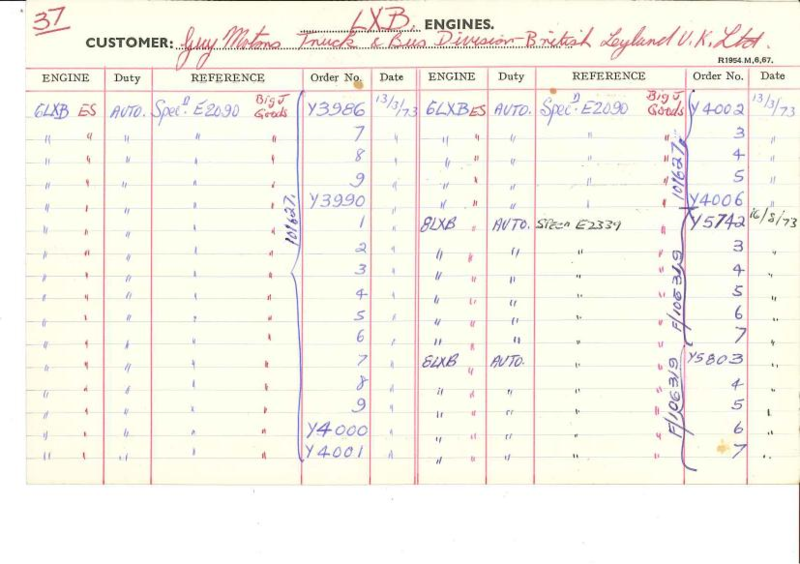 37
LXB. ENGINES.
CUSTOMER: Guy Motors Truck & Bus Division - British Leyland U.K. Ltd.
R1954.M,6,67.
ENGINE Duty REFERENCE Order No. Date ENGINE Duty REFERENCE Order No. Date
6LXB ES AUTO. Specn. E2090 Big J Goods Y3986 13/3/73 6LXB ES AUTO. Specn. E2090 Big J Goods Y4002 13/3/73
" " " " " 7 " " " " " " 3 "
" " " " " 8 " " " " " " 4 "
" " " " " 9 " " " " " " 5 "
" " " " " Y3990 " " " " " " Y4006 "
101627. 101627.
" " " " " 1 " 8LXB " AUTO. Specn E2339 " Y5742 16/8/73
" " " " " 2 " " " " " " 3 "
" " " " " 3 " " " " " " 4 "
" " " " " 4 " " " " " " 5 "
" " " " " 5 " " " " " " 6 "
" " " " " 6 " " " " " " 7 "
F/106319
" " " " " 7 " 8LXB " AUTO. " " Y5803 "
" " " " " 8 " " " " " " 4 "
" " " " " 9 " " " " " " 5 "
" " " " " Y4000 " " " " " " 6 "
" " " " " Y4001 " " " " " " 7 "
F/106319